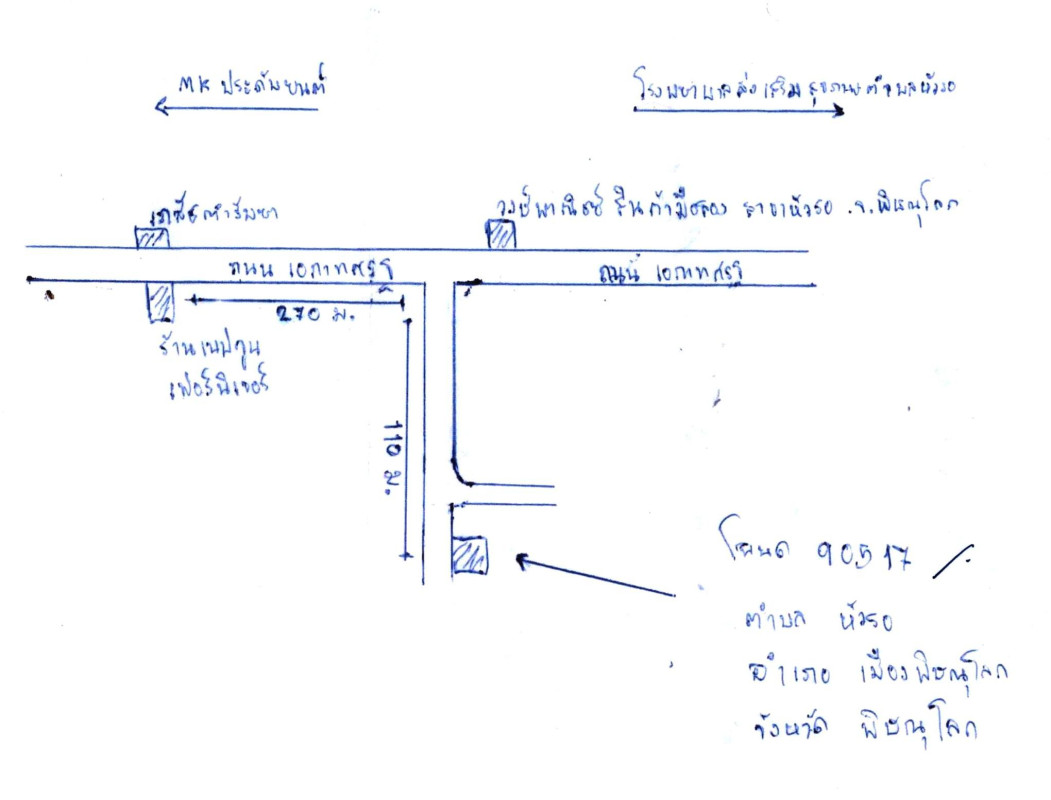 MK ประดับยนต์
โรงพยาบาลส่งเสริมสุขภาพตำบลหัวรอ
เภสัช
วงษ์พาณิชย์ สินค้ามือสอง สาขาหัวรอ จ.พิษณุโลก
ถนน เอกาทศรฐ
ถนน เอกาทศรฐ
270 ม.
ร้านเนปจูน
เฟอร์นิเจอร์
110 ม.
โฉนด 90517
ตำบล หัวรอ
อำเภอ เมืองพิษณุโลก
จังหวัด พิษณุโลก